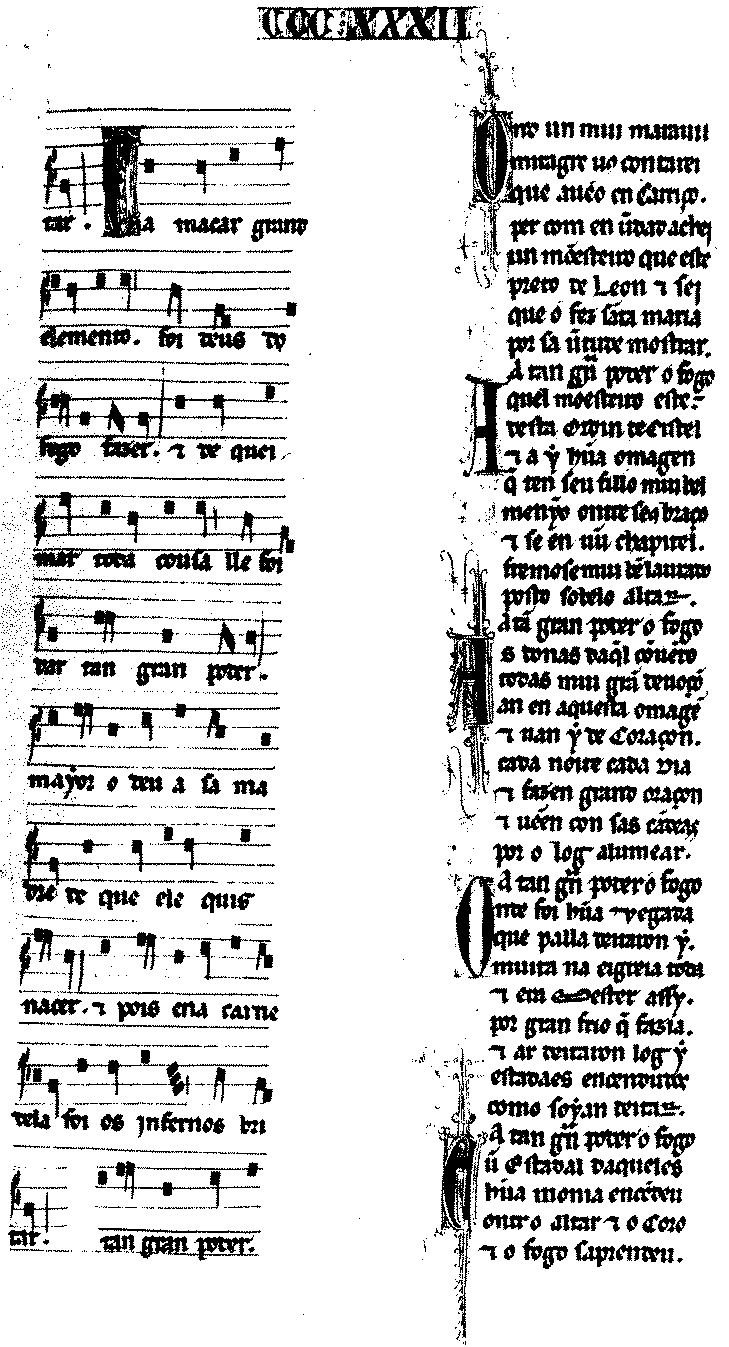 CCC XXXII
tar. Ca macar grand
elemento. foi deus do
fogo fazer. ⁊ de quei
mar toda cousa lle foi
dar tan gran poder.
mayor o deu a sa ma
dre de que ele quis
nacer. ⁊ pois cna carne
dela foi os jnfernos bri
tar. tan gran poder.
Ond un mui marauill
miragre uo contarei
que aueo en Carriço.
per com en ũdad achei
un mõesteiro que este
preto de Leon ⁊ sei
que o fez sãta maria
por sa ũtude mostrar.
A tan grã poder o fogo
Aquel moesteiro este
desta Ordin de Cistel
⁊ a ẏ hũa omagen
q̃ ten seu fillo mui bel
menỹo ontre seos braços
⁊ se en ũu chapitel.
fremose mui bẽ laurado
posto sobelo altar.
A tã gran poder o fogo
As donas daq̃l cõuẽto
todas mui grã deuoçõ
an en aquesta omagẽ
⁊ uan ẏ de Coraçon.
cada noite cada dia
⁊ fazen grand oraçon
⁊ uẽen con sas cãdeas
por o log alumear.
A tan grã poder o fogo
Onde foi hũa uegada
que palla deitaron ẏ.
muita na eigreia toda
⁊ em mester assy.
por gran frio q̃ fazia.
⁊ ar deitaron log ẏ
estadaes encendudos
como soyan deitar.
A tan grã poder o fogo
E ũ Estadal daqueles
hũa monia encẽdeu
ontr o altar ⁊ o Coro
⁊ o fogo saprendeu.